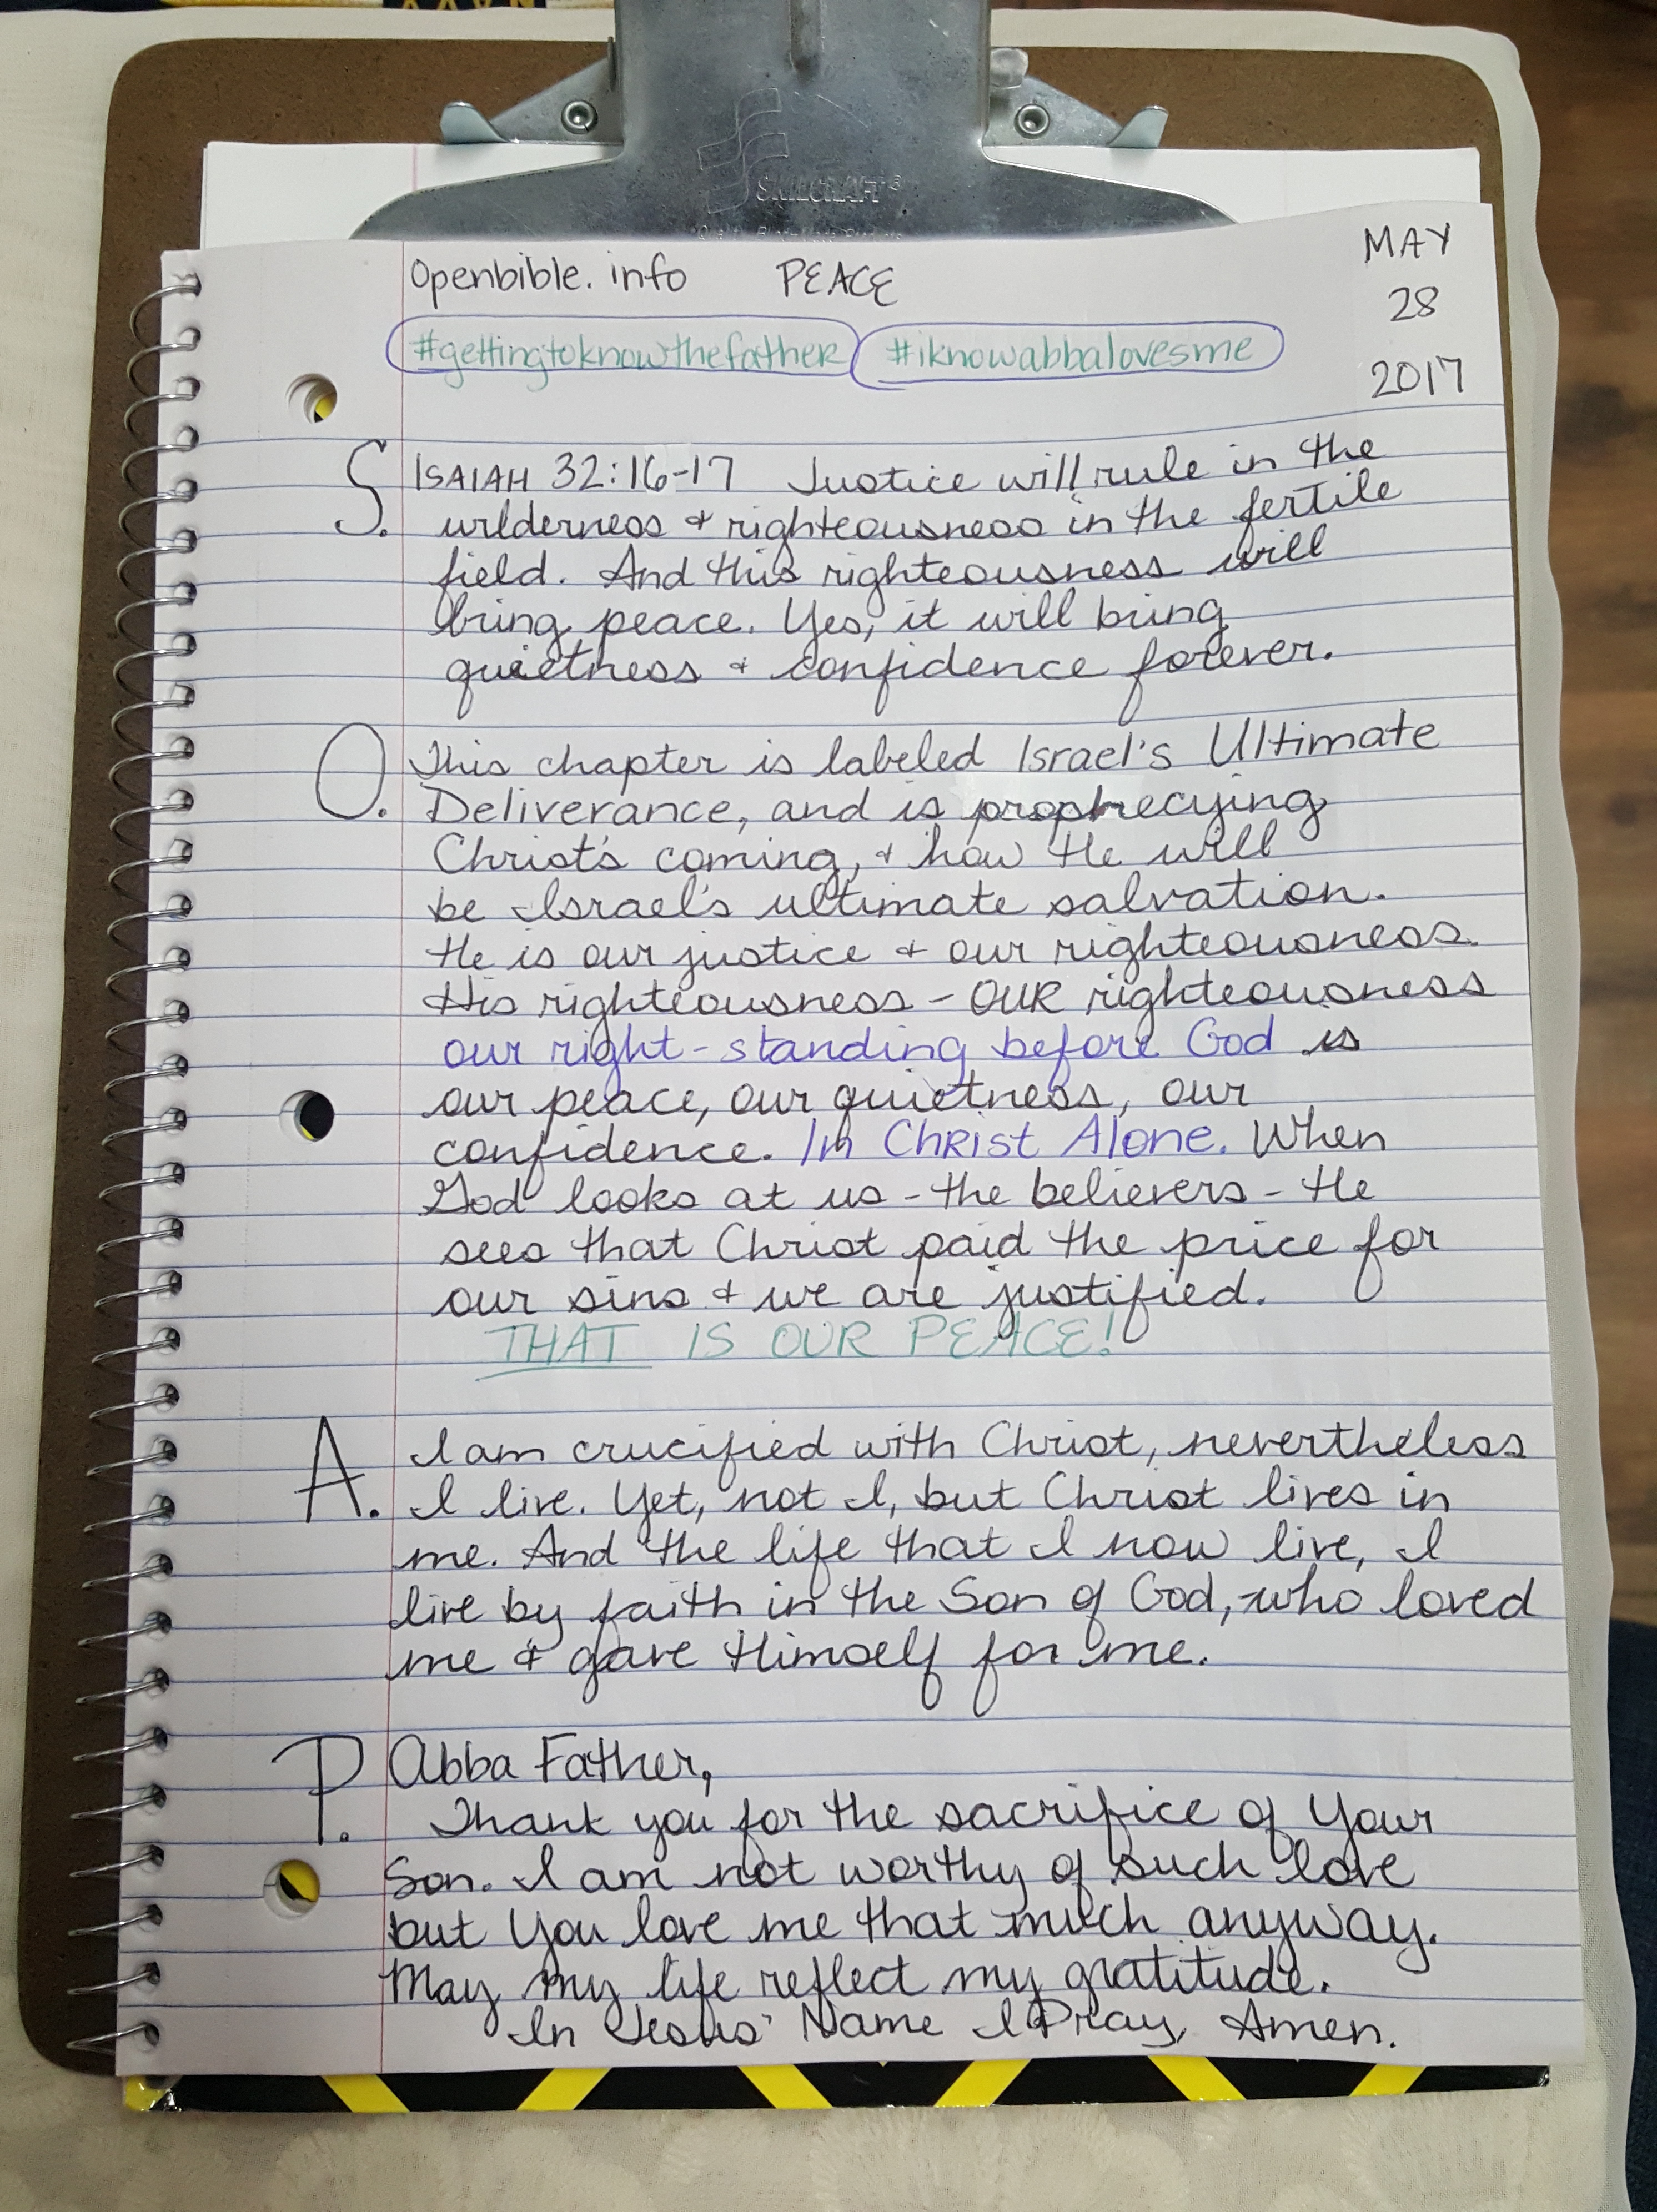 SKILCRAFT®
Openbible.info PEACE
MAY
28
2017
#gettingtoknowthefather #iknowabbalovesme
S. ISAIAH 32:16-17 Justice will rule in the
wilderness & righteousness in the fertile
field. And this righteousness will
bring peace. Yes, it will bring
quietness & confidence forever.
O. This chapter is labeled Israel's Ultimate
Deliverance, and is prophecying
Christ's coming, & how He will
be Israel's ultimate salvation.
He is our justice & our righteousness.
His righteousness - OUR righteousness
our right-standing before God is
our peace, our quietness, our
confidence. In Christ Alone. When
God looks at us - the believers - He
sees that Christ paid the price for
our sins & we are justified.
THAT IS OUR PEACE!
A. I am crucified with Christ, nevertheless
I live. Yet, not I, but Christ lives in
me. And the life that I now live, I
live by faith in the Son of God, who loved
me & gave Himself for me.
P. Abba Father,
Thank you for the sacrifice of Your
Son. I am not worthy of such love
but You love me that much anyway.
May my life reflect my gratitude.
In Jesus' Name I Pray, Amen.